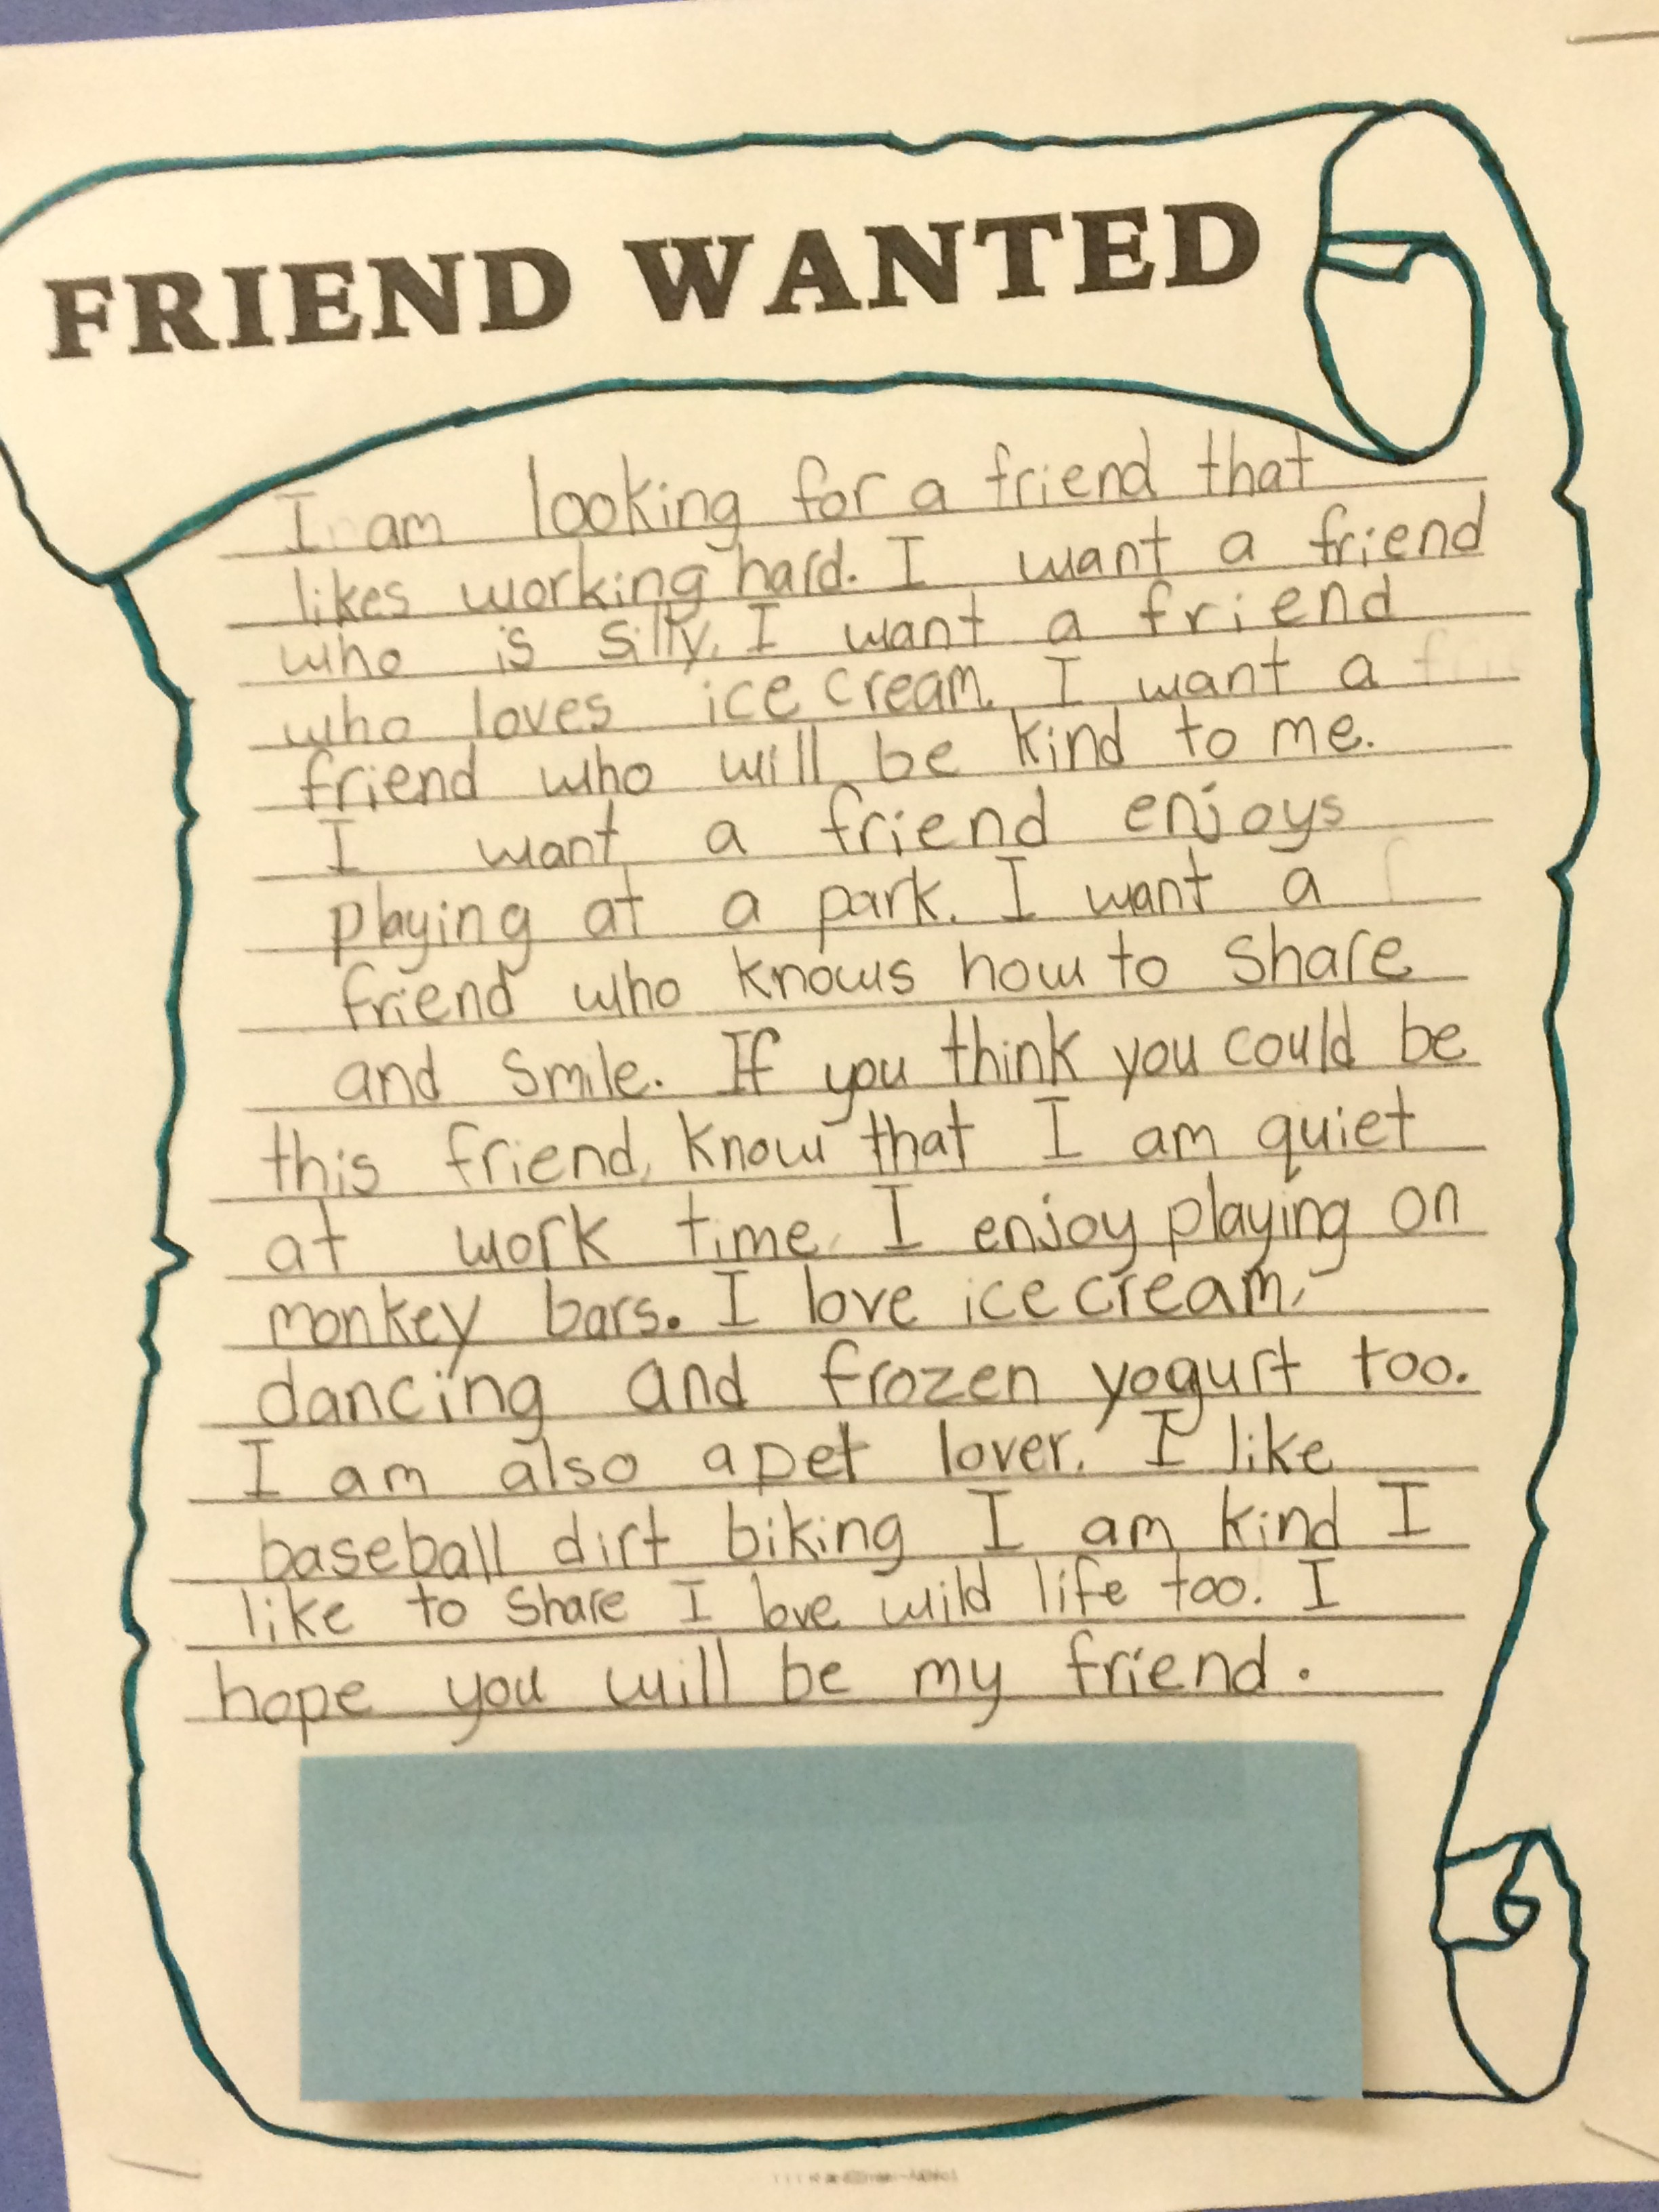 FRIEND WANTED
I am looking for a friend that
likes working hard. I want a friend
who is silly. I want a friend
who loves ice cream. I want a
friend who will be kind to me.
I want a friend enjoys
playing at a park. I want a
friend who knows how to share
and smile. If you think you could be
this friend, know that I am quiet
at work time. I enjoy playing on
monkey bars. I love ice cream,
dancing and frozen yogurt too.
I am also a pet lover. I like
baseball dirt biking I am kind I
like to share I love wild life too. I
hope you will be my friend.